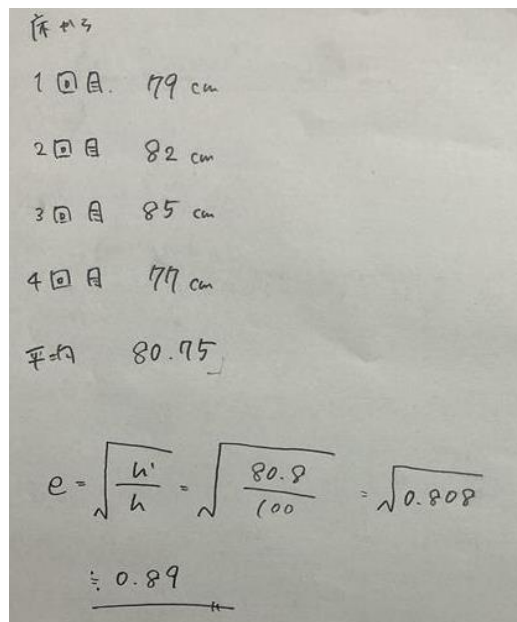 床から
1回目. 79 cm
2回目 82 cm
3回目 85 cm
4回目 77 cm
平均 80.75
e = √(h'/h) = √(80.8/100) = √0.808
≒ 0.89